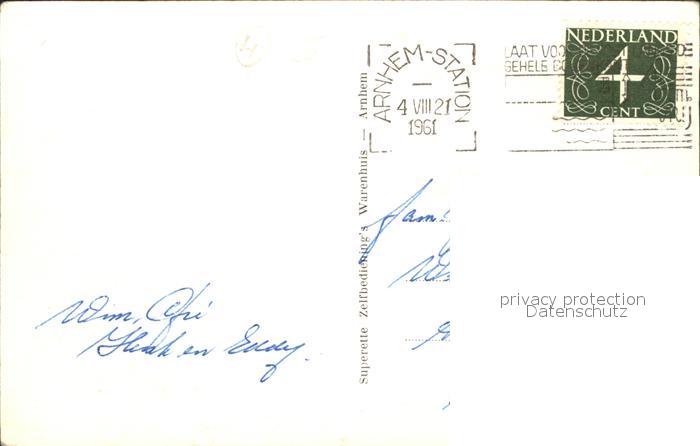 ARNHEM-STATION
4 VIII 21
1961
LAAT VOO
GEHELE
NEDERLAND
4
CENT
Superette Zelfbediening's Warenhuis — Arnhem
Fam
Wim,
Henk en Eddy.
privacy protection
Datenschutz